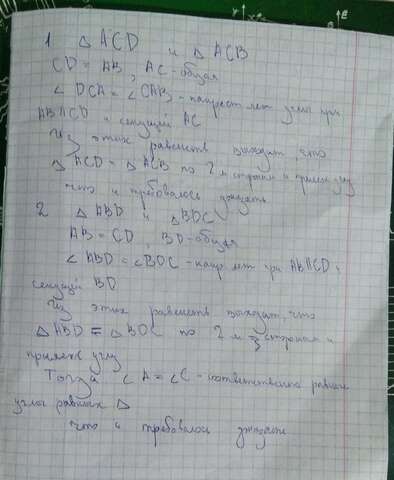 1 △ ACD и △ ACB
CD = AB, AC - общая
∠ DCA = ∠ CAB - накрест леж углы при
AB || CD и секущей AC
Из этих равенств выходит, что
△ ACD = △ ACB по 2 м сторонам и прилеж углу
что и требовалось доказать
2 △ ABD и △ BDC
AB = CD, BD - общая
∠ ABD = ∠ BDC - накр леж при AB || CD,
секущей BD
Из этих равенств выходит, что
△ ABD = △ BDC по 2 м сторонам и
прилеж углу
Тогда ∠ A = ∠ C - соответственно равные
углы равных △
что и требовалось доказать